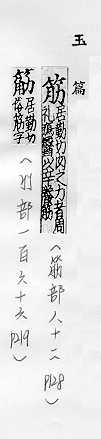 玉篇
筋 居勤切肉之力也周礼醫以辛養筋（筋部八十二 P128）
𥬔 居勤切俗筋字（竹部一百六十六 P219）